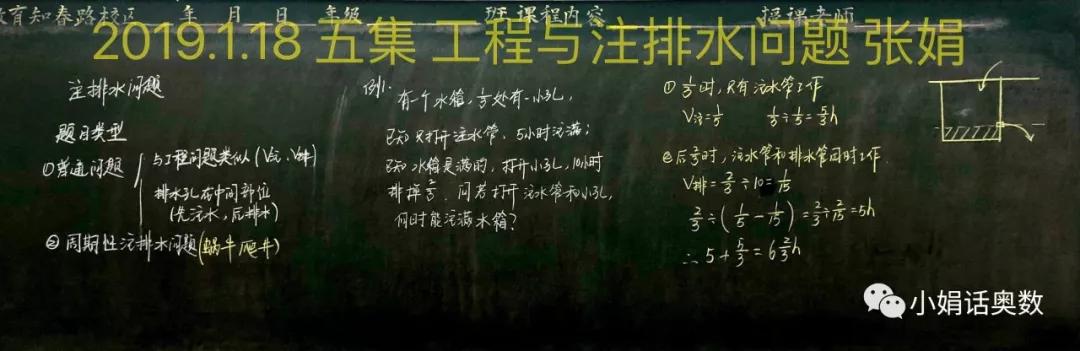 教育知春路校区 年 月 日 年级 班 课程内容 授课老师
2019.1.18 五集 工程与注排水问题 张娟
注排水问题
题目类型
①普通问题
与工程问题类似(V注、V排)
排水孔在中间部位
(先注水,后排水)
②周期性注排水问题(蜗牛爬井)
例1.
有一个水箱,1/3处有一小孔,
已知只打开注水管,5小时注满;
已知水箱是满的,打开小孔,10小时
排掉2/3.问若打开注水管和小孔,
何时能注满水箱?
①1/3时,只有注水管工作
V注=1/5 1/3÷1/5=5/3h
②后2/3时,注水管和排水管同时工作.
V排=2/3÷10=1/15
2/3÷(1/5-1/15)=2/3÷2/15=5h
∴5+5/3=6 2/3h
小娟话奥数